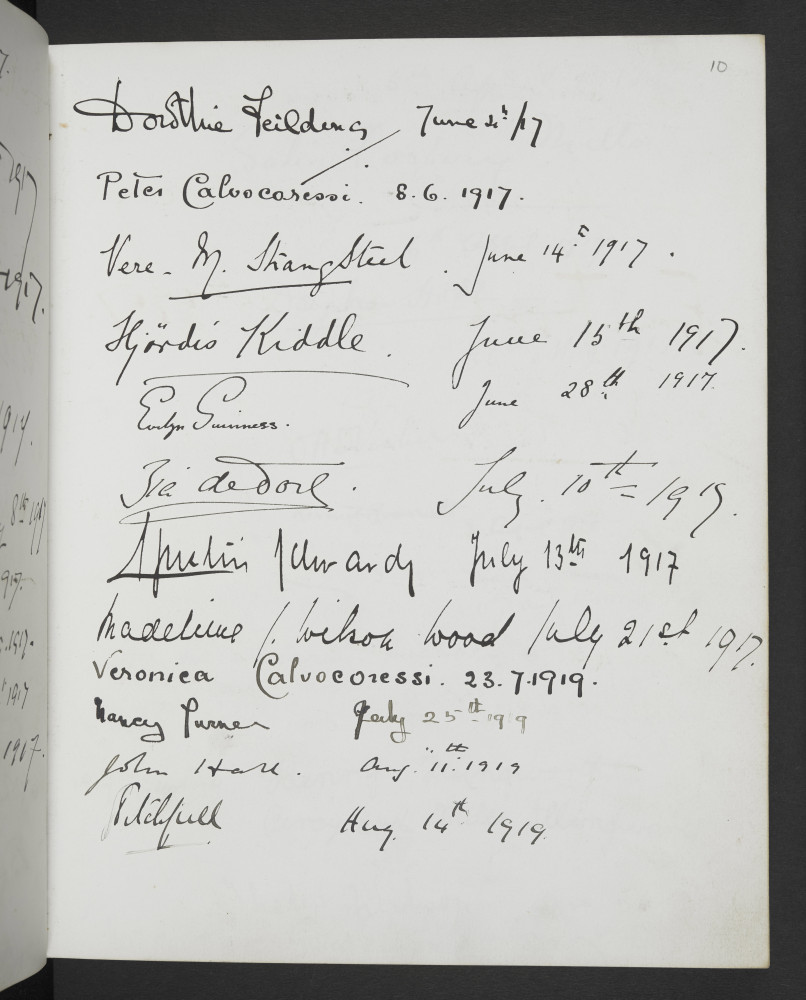 10
Dorothie Feilding June 4th/17
Peter Calvocoressi. 8.6.1917.
Vere. M. Strang Steel. June 14th 1917.
Hjördis Kiddle. June 15th 1917.
Evelyn Guinness. June 28th 1917.
de July. 10th 1917.
July 13th 1917
Madeline J. Wilson Wood July 21st 1917.
Veronica Calvocoressi. 23.7.1919.
Nancy Turner July 25th 1919
John Hall. Aug. 11th 1919
Aug. 14th 1919.